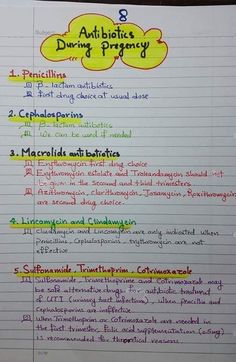 8
Antibiotics
During pregency
1. Penicillins
β- lactam antibiotics
first drug choice at usual dose
2. Cephalosporins
β- lactam antibiotics
We can be used if needed
3. Macrolids antibiotics
Erythromycin first drug choice
Erythromycin estolate and Troleandomycin should not
be given in the second and third trimesters
Azithromycin, Clarithromycin, Josamycin, Roxithromycin
are second drug choice.
4. Lincomycin and Clindamycin
Clindamycin and Lincomycin are only indicated when
penicillins, Cephalosporins, erythromycin are not
effective
5. Sulfonamide, Trimethoprim, Cotrimoxazole
Sulfonamide, Trimethoprime and Cotrimoxazole may
be safe alternative drugs for antibiotic treatment
of UTI (urinary tract infections), when penicillin and
Cephalosporins are inffective.
When Trimethoprim or Cotrimoxazole are needed in
the first trimester, folic acid supplementation (0.5mg)
is recommended for theoretical reasons